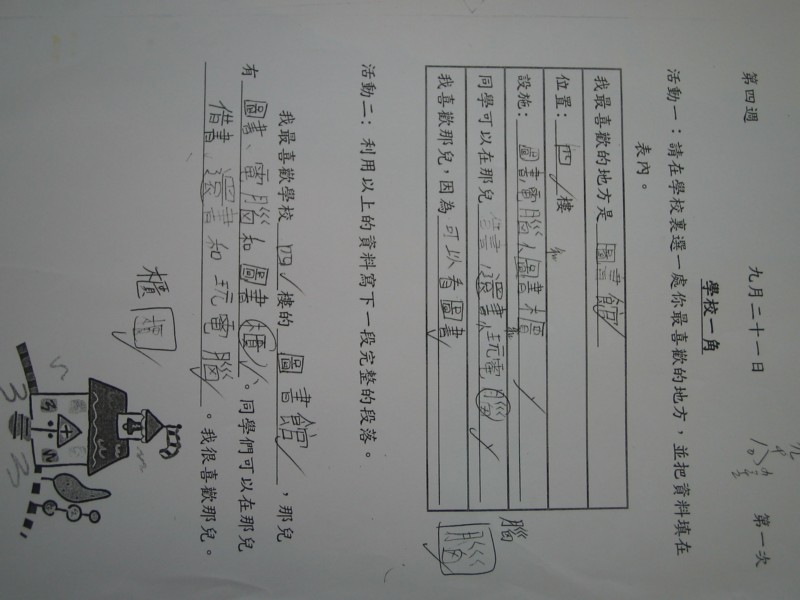 第四週 九月二十一日 第一次
學校一角
活動一：請在學校裏選一處你最喜歡的地方，並把資料填在
表內。
我最喜歡的地方是 圖書館
位置： 四 樓
設施： 圖書電腦和圖書櫃
同學可以在那兒 借書還書和玩電腦
我喜歡那兒，因為 可以看圖書
腦
腦
活動二：利用以上的資料寫下一段完整的段落。
我最喜歡學校 四 樓的 圖書館 ，那兒
有 圖書、電腦和圖書櫃 。同學們可以在那兒
借書、還書和玩電腦 。我很喜歡那兒。
櫃 櫃